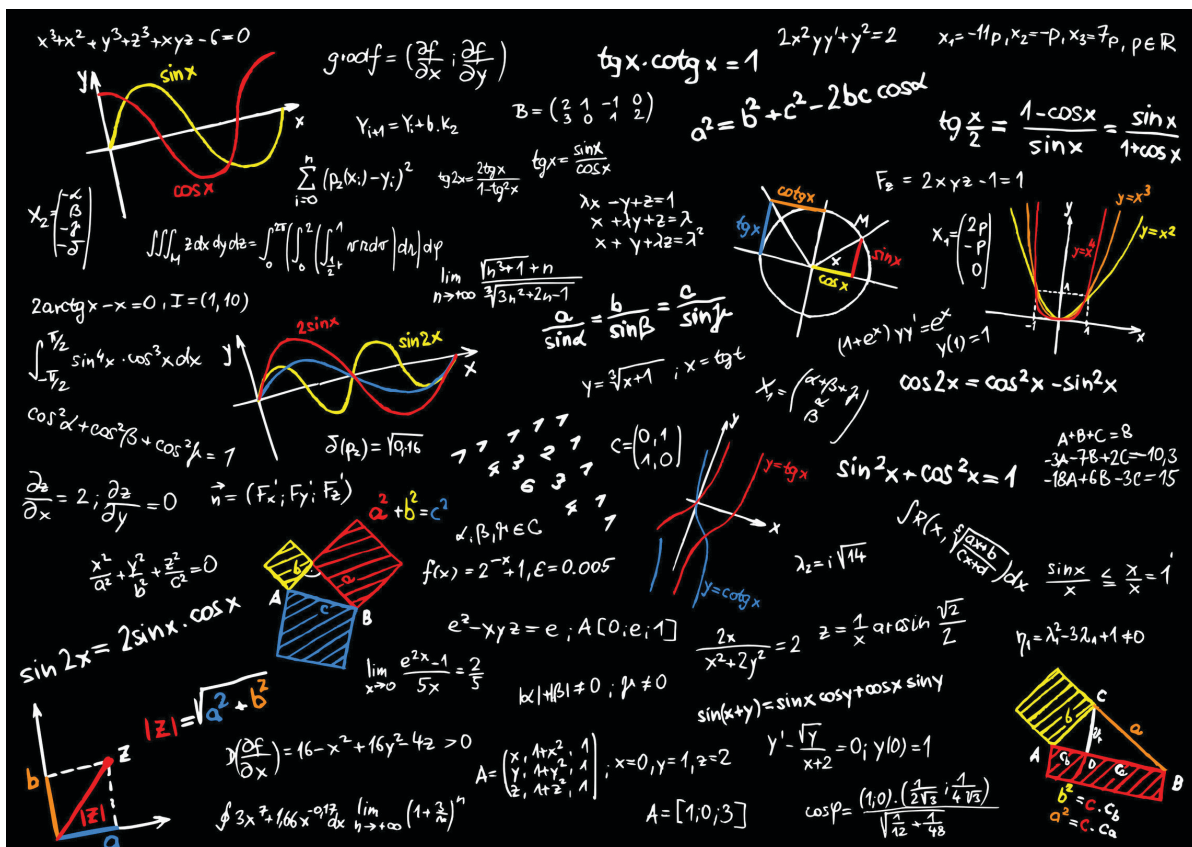 x³+x²+y³+z³+xyz-6=0
gradf = (∂f/∂x ; ∂f/∂y)
tgx·cotgx = 1
2x²yy'+y²=2
x₁=-11p, x₂=-p, x₃=7p, p∈ℝ
y
sinx
x
cosx
B = (2 1 -1 0
3 0 1 2)
Yᵢ₊₁=Yᵢ+b.k₂
a²=b²+c²-2bc cosα
tg x/2 = (1-cosx)/sinx = sinx/(1+cosx)
∑ᵢ₌₀ⁿ (p₂(xᵢ)-yᵢ)²
tg2x = 2tgx/(1-tg²x)
tgx = sinx/cosx
F₂ = 2xyz-1=1
X₂ = (-α
β
-γ
-δ)
λx-y+z=1
x+λy+z=λ
x+y+λz=λ²
cotgx
tgx
M
x
sinx
cosx
x₁ = (2p
-p
0)
y
y=x³
y=x⁴
y=x²
1
-1
1
x
lim n→+∞ (√(n³+1)+n)/∛(3n²+2n-1)
2arctgx-x=0, I=(1,10)
a/sinα = b/sinβ = c/sinγ
(1+eˣ)yy'=eˣ
y(1)=1
∫₋π/₂^π/₂ sin⁴x·cos³x dx
y
2sinx
sin2x
x
y=∛(x+1) ; x=tgt
cos2x=cos²x-sin²x
cos²α+cos²β+cos²γ=1
δ(p₂)=√0,16
C=(0,1
1,0)
y
y=tgx
x
y=cotgx
sin²x+cos²x=1
A+B+C=8
-3A-7B+2C=-10,3
-18A+6B-3C=15
∂z/∂x = 2 ; ∂z/∂y = 0
n⃗ = (Fx'; Fy'; Fz')
a²+b²=c²
b
a
A
c
B
α,β,γ∈C
∫R(x, ⁵√((ax+b)/(cx+d)))dx
sinx/x ≤ x/x = 1
x²/a²+y²/b²+z²/c²=0
f(x)=2⁻ˣ+1, ε=0.005
λ₂=i√14
sin2x=2sinx.cosx
eᶻ-xyz=e ; A[0;e;1]
2x/(x²+2y²)=2
z = 1/x arcsin √2/2
η₁=λ₁²-3λ₁+1≠0
lim x→0 (e²ˣ-1)/5x = 2/5
|α|+|β|≠0 ; γ≠0
sin(x+y)=sinx cosy+cosx siny
|z|=√(a²+b²)
b
z
|z|
a
(∂f/∂x)=16-x²+16y²-4z>0
A=(x, 1+x², 1
y, 1+y², 1
z, 1+z², 1) ; x=0, y=1, z=2
y'-√y/(x+2)=0 ; y(0)=1
∮ 3x⁷+1,66x⁻⁰'¹⁷dx
A=[1;0;3]
cosφ = (1;0).(1/(2√3) ; 1/(4√3))/√(1/12+1/48)
C
b
a
A
D
B
b²=c.c_b
a²=c.c_a